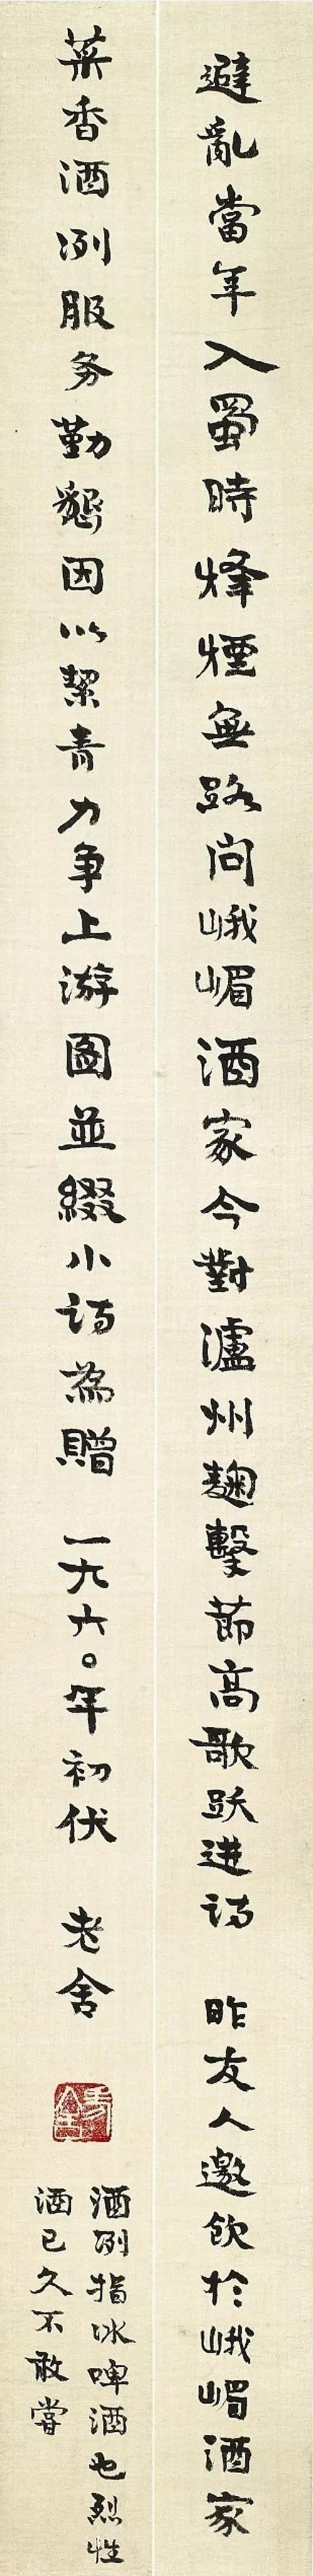 避亂當年入蜀時烽煙無路問峨嵋酒家今對瀘州麹擊節高歌跃进诗 昨友人邀飲於峨嵋酒家
菜香酒冽服务勤懇因以絜青力争上游圖並綴小诗為贈 一九六〇年初伏 老舍
舍予
酒冽指冰啤酒也烈性
酒已久不敢嘗